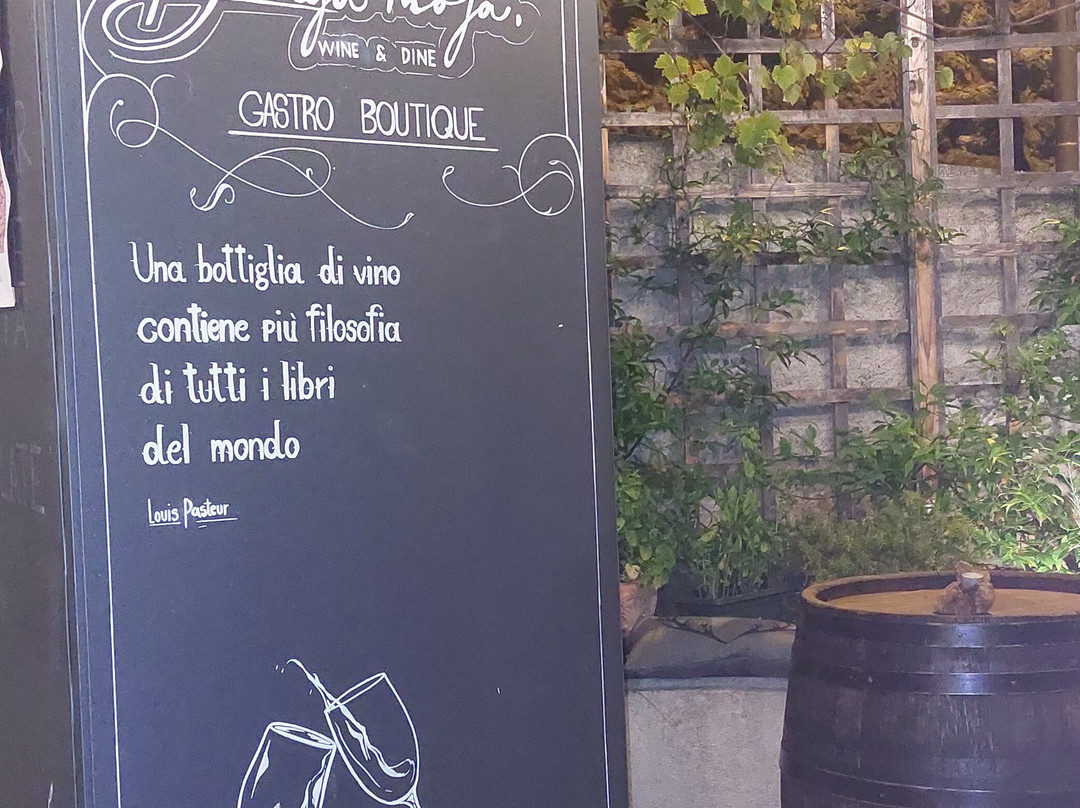 WINE & DINE
GASTRO BOUTIQUE
Una bottiglia di vino
contiene più filosofia
di tutti i libri
del mondo
Louis Pasteur